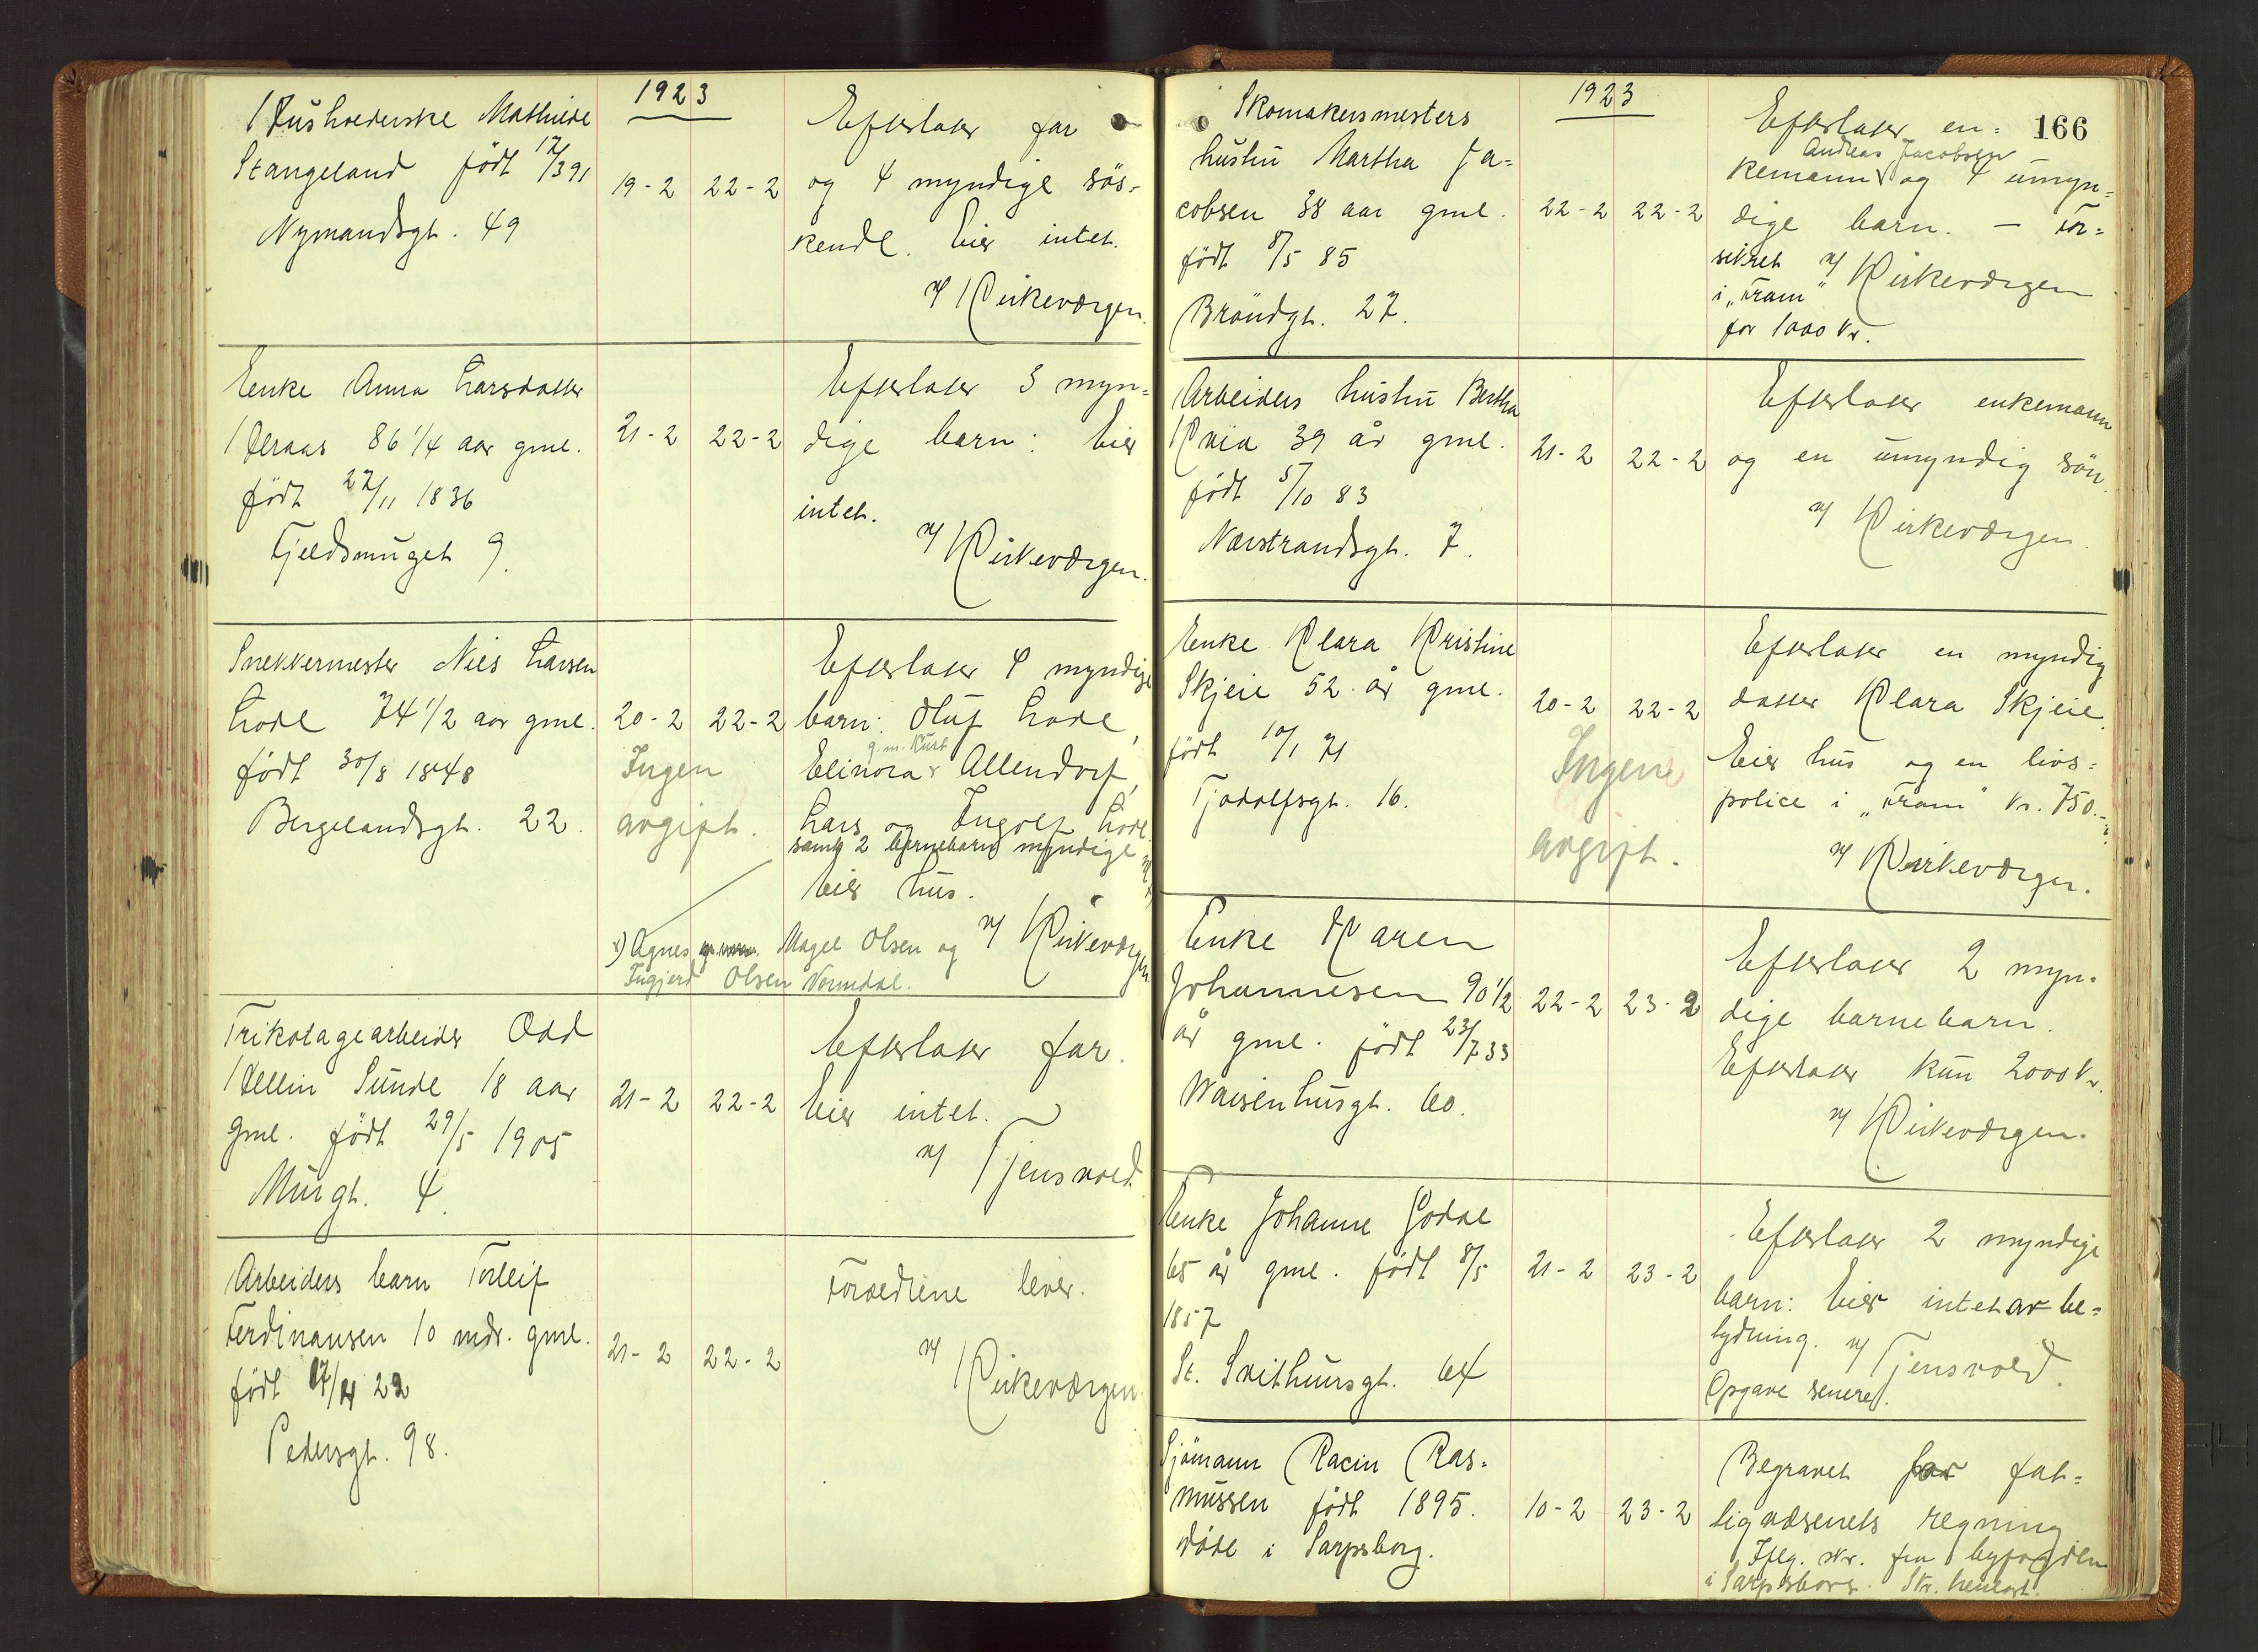 1923
Husholderske Mathilde
Stangeland født 17/3 91
Nymandsgt. 49
19-2 22-2
Efterlater far
og 4 myndige søs-
kende. Eier intet.
v/ Kirkeværgen.
Enke Anna Larsdatter
Heraas 86 1/4 aar gml.
født 27/11 1836
Fjeldsmuget 9.
21-2 22-2
Efterlater 3 myn=
dige barn: Eier
intet.
v/ Kirkeværgen.
Snekkermester Nils Larsen
Lode 74 1/2 aar gml.
født 30/8 1848
Bergelandsgt. 22.
20-2 22-2
Ingen
avgift.
Efterlater 4 myndige
barn: Oluf Lode,
g.m. Kurt
Elinora Allendorf,
Lars og Ingolf Lode
samt 2 barnebarn myndige x)
Eier hus.
v/ Kirkeværgen
x) Agnes Magel Olsen og
Ingjerd Olsen Normdal.
Trikotagearbeider Odd
Hellin Sunde 18 aar
gml. født 29/5 1905
Murgt. 4.
21-2 22-2
Efterlater far.
Eier intet.
v/ Tjensvold
Arbeiders barn Torleif
Ferdinansen 10 mdr. gml.
født 17/4 22
Pedersgt. 98.
21-2 22-2
Forældrene lever.
v/ Kirkeværgen
166
1923
Skomakermesters
hustru Martha Ja=
cobsen 38 aar gml.
født 8/5 85
Brøndgt. 27.
22-2 22-2
Efterlater en=
Andreas Jacobsen
kemann og 4 umyn=
dige barn. - For=
sikret v/ Kirkeværgen
i "Fram"
for 1000 kr.
Arbeiders hustru Bertha
Kvia 39 år gml.
født 5/10 83
Nærstrandsgt. 7.
21-2 22-2
Efterlater enkemann
og en umyndig søn.
v/ Kirkeværgen.
Enke Klara Kristine
Skjeie 52 år gml.
født 10/1 71
Tjodolfsgt. 16.
20-2 22-2
Ingen
avgift.
Efterlater en myndig
datter Klara Skjeie
Eier hus og en livs=
police i "Fram" kr. 750.-
v/ Kirkeværgen.
Enke Karen
Johannesen 90 1/2
år gml. født 23/7 33
Waisenhusgt. 60.
22-2 23-2
Efterlater 2 myn-
dige barnebarn.
Efterlater kun 2000 kr.
v/ Kirkeværgen.
Enke Johanne Godal
65 år gml. født 8/5
1857
St. Svithunsgt. 64
21-2 23-2
Efterlater 2 myndige
barn: Eier intet av be=
tydning. v/ Tjensvold.
Opgave senere.
Sjømann Racin Ras=
mussen født 1895.
døde i Sarpsborg.
10-2 23-2
Begravet for fat=
tigvæsenets regning
Iflg. skr. fra byfogden
i Sarpsborg.